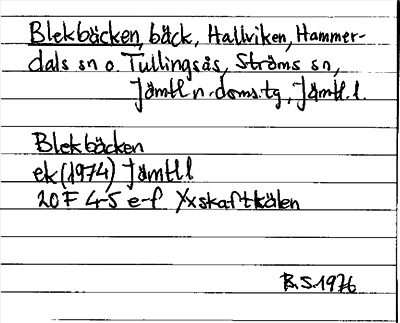 Blekbäcken, bäck, Hallviken, Hammer-
dals sn o. Tullingsås, Ströms sn,
Jämtl n. doms.tg, Jämtl. l.
Blekbäcken
ek (1974) Jämtl l
20F 4-5 e-f Yxskaftkälen
B.S. 1976